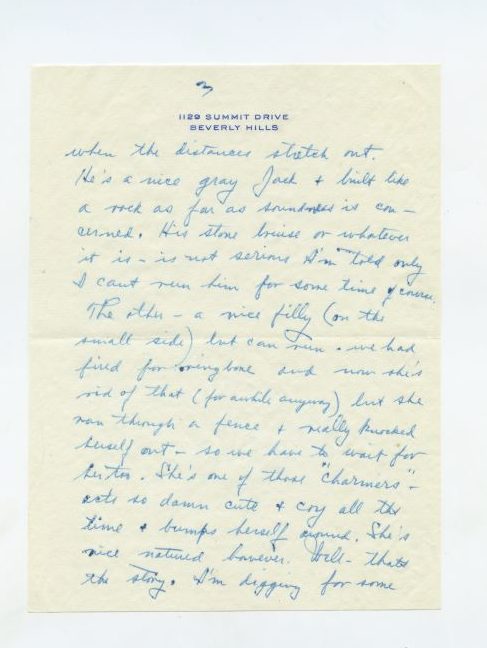 3
1129 SUMMIT DRIVE
BEVERLY HILLS
when the distances stretch out.
He's a nice gray Jack & built like
a rock as far as soundness is con-
cerned. His stone bruise or whatever
it is - is not serious I'm told only
I cant run him for some time of course.
The other - a nice filly (on the
small side) but can run. we had
fired for ringbone and now she's
rid of that (for awhile anyway) but she
ran through a fence & really knocked
herself out - so we have to wait for
her too. She's one of those "charmers" -
acts so damn cute & coy all the
time & bumps herself around. She's
nice natured however. Well - thats
the story. I'm digging for some